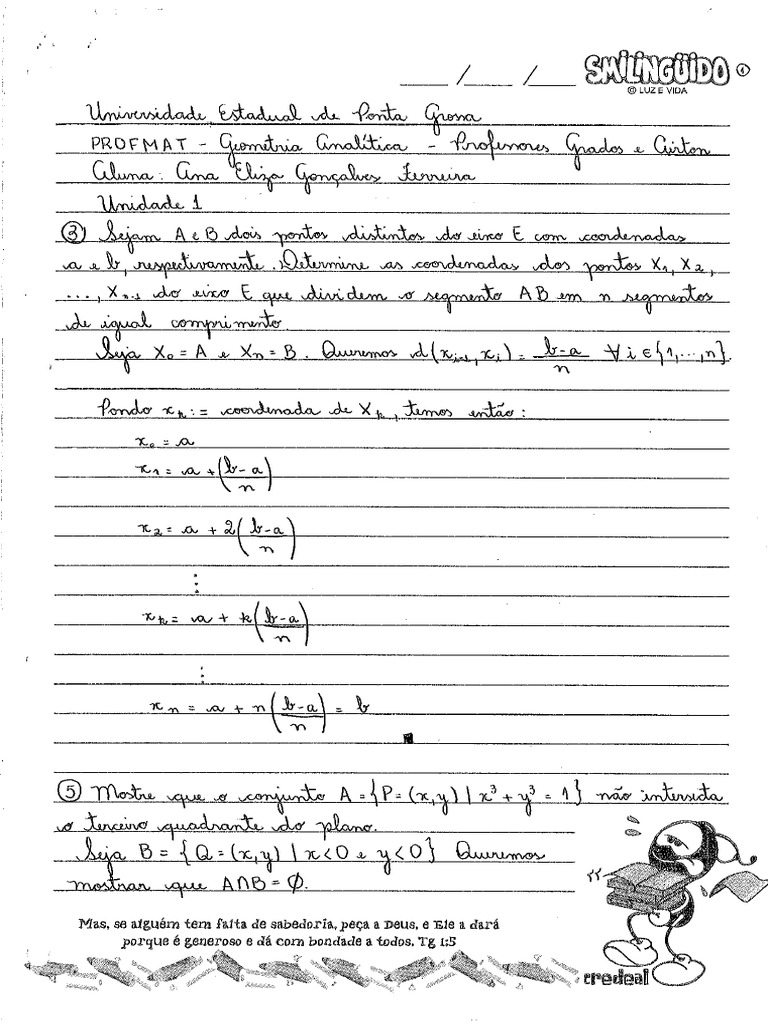 ___/___/___ SMILINGÜIDO 1
@ LUZ E VIDA
Universidade Estadual de Ponta Grossa
PROFMAT - Geometria Analítica - Professores Grados e Airton
Aluna: Ana Eliza Gonçalves Ferreira
Unidade 1
③ Sejam A e B dois pontos distintos do eixo E com coordenadas
a e b, respectivamente. Determine as coordenadas dos pontos X₁, X₂,
..., Xₙ₋₁ do eixo E que dividem o segmento AB em n segmentos
de igual comprimento.
Seja X₀ = A e Xₙ = B. Queremos d(xᵢ₋₁, xᵢ) = (b-a)/n ∀ i ∈ {1,...,n}.
Pondo xₖ := coordenada de Xₖ, temos então:
x₀ = a
x₁ = a + ((b-a)/n)
x₂ = a + 2((b-a)/n)
⋮
xₖ = a + k((b-a)/n)
⋮
xₙ = a + n((b-a)/n) = b
⑤ Mostre que o conjunto A = {P = (x,y) | x³ + y³ = 1} não intersecta
o terceiro quadrante do plano.
Seja B = {Q = (x,y) | x<0 e y<0} Queremos
mostrar que A∩B = ∅.
Mas, se alguém tem falta de sabedoria, peça a Deus, e Ele a dará
porque é generoso e dá com bondade a todos. Tg 1:5
credeal